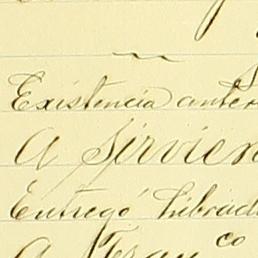 Existencia anter
A Sirvien
Entregó Librad
A Fran co